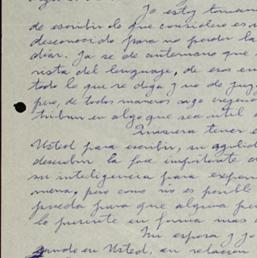 Yo estoy toman
de escribir lo que considero es n
desconocido para no perder la
días. Ya se de antemano que
rista del lenguaje, de esos en
todo lo que se diga y no de juzg
pero, de todos maneros sigo creyendo
tribuir en algo que sea útil a
manera tener e
Usted para escribir, su agilidad
descubrir la fase importante d
su inteligencia para expon
mera, pero como no es posible
pueda para que alguna pe
lo presente en forma mas a
Mi esposa y yo
en Usted, en relacion